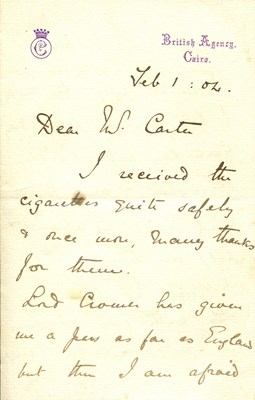 British Agency,
Cairo.
Feb 1 : 04.
Dear Mr. Carter
I received the
cigarettes quite safely
& once more, many thanks
for them.
Lord Cromer has given
me a pass as far as England
but then I am afraid